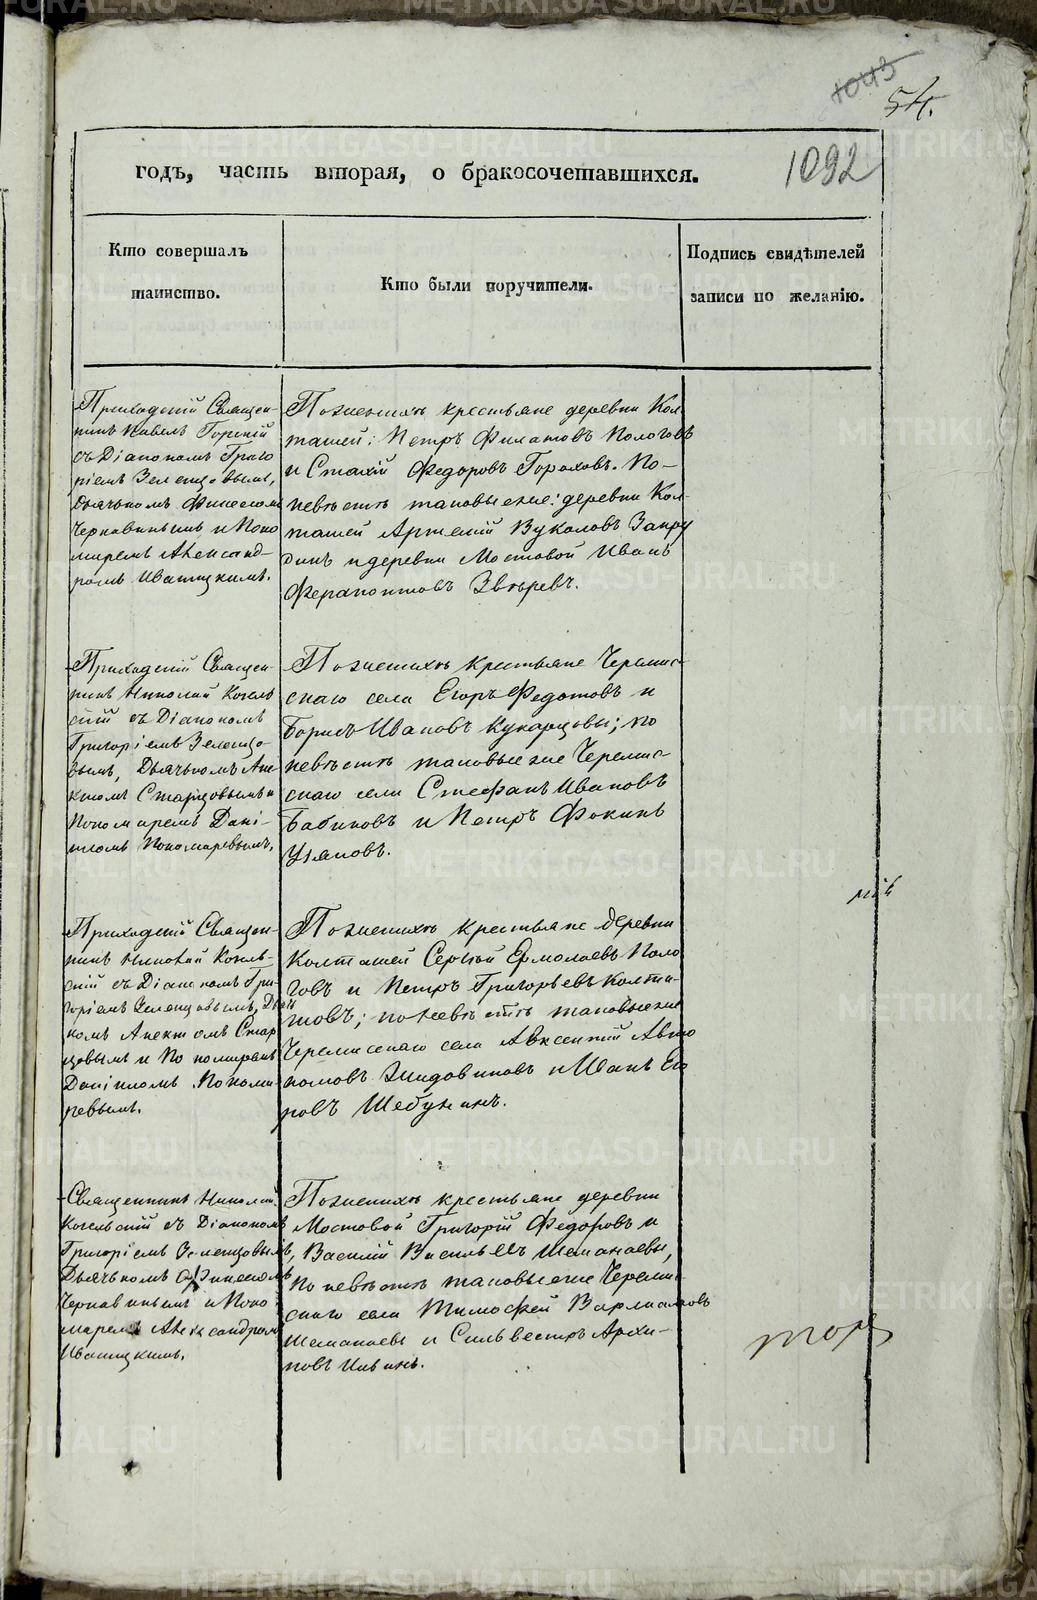 1043
54.
годъ, часть вторая, о бракосочетавшихся.
1092
Кто совершалъ
таинство.
Кто были поручители.
Подпись свидѣтелей
записи по желанію.
Приходскій Священ-
никъ Павелъ Горскій
съ Діакономъ Григо
ріемъ Зеленцовымъ,
Дьячкомъ Финеесомъ
Чернавинымъ и Поно
маремъ Александ-
ромъ Иваницкимъ.
По женихѣ крестьяне деревни Кол-
ташей: Петръ Филатовъ Пологовъ
и Стахій Федоровъ Гороховъ. По-
невѣстѣ таковые же: деревни Кол-
ташей Артемій Вуколовъ Запру
динъ и деревни Мостовой Иванъ
Ферапонтовъ Звѣревъ.
Приходскій Священ-
никъ Николай Козель
скій съ Діакономъ
Григоріемъ Зеленцо-
вымъ, Дьячкомъ Али-
ктомъ Старцовымъ и
Пономаремъ Дані-
иломъ Пономаревымъ.
По женихѣ крестьяне Черемис-
скаго села Егоръ Федотовъ и
Борисъ Ивановъ Кукарцовы; по
невѣстѣ таковые же Черемис-
скаго села Стефанъ Ивановъ
Бабиновъ и Петръ Фокинъ
Узяновъ.
Приходскій Священ-
никъ Николай Козель-
скій съ Діакономъ Гри-
горіемъ Зеленцовымъ, Дьяч
комъ Аликтомъ Стар
цовымъ и Пономаремъ
Даніиломъ Понома-
ревымъ.
По женихѣ крестьяне деревни
Колташей Сергѣй Ермолаевъ Поло
говъ и Петръ Григорьевъ Колта-
шовъ; по невѣстѣ таковые же
Черемисскаго села Авксентій Авто
номовъ Шидовиновъ и Иванъ Его
ровъ Шебунинъ.
Священникъ Николай
Козельскій съ Діакономъ
Григоріемъ Зеленцовымъ,
Дьячкомъ Финеесомъ
Чернавинымъ и Поно
маремъ Александромъ
Иваницкимъ.
По женихѣ крестьяне деревни
Мостовой Григорій Федоровъ и
Василій Васильевъ Шеманаевы,
по невѣстѣ таковые же Черемис-
скаго села Тимофей Варлаамовъ
Шеманаевъ и Сильвестръ Архи-
повъ Ильинъ.
METRIKI.GASO-URAL.RU